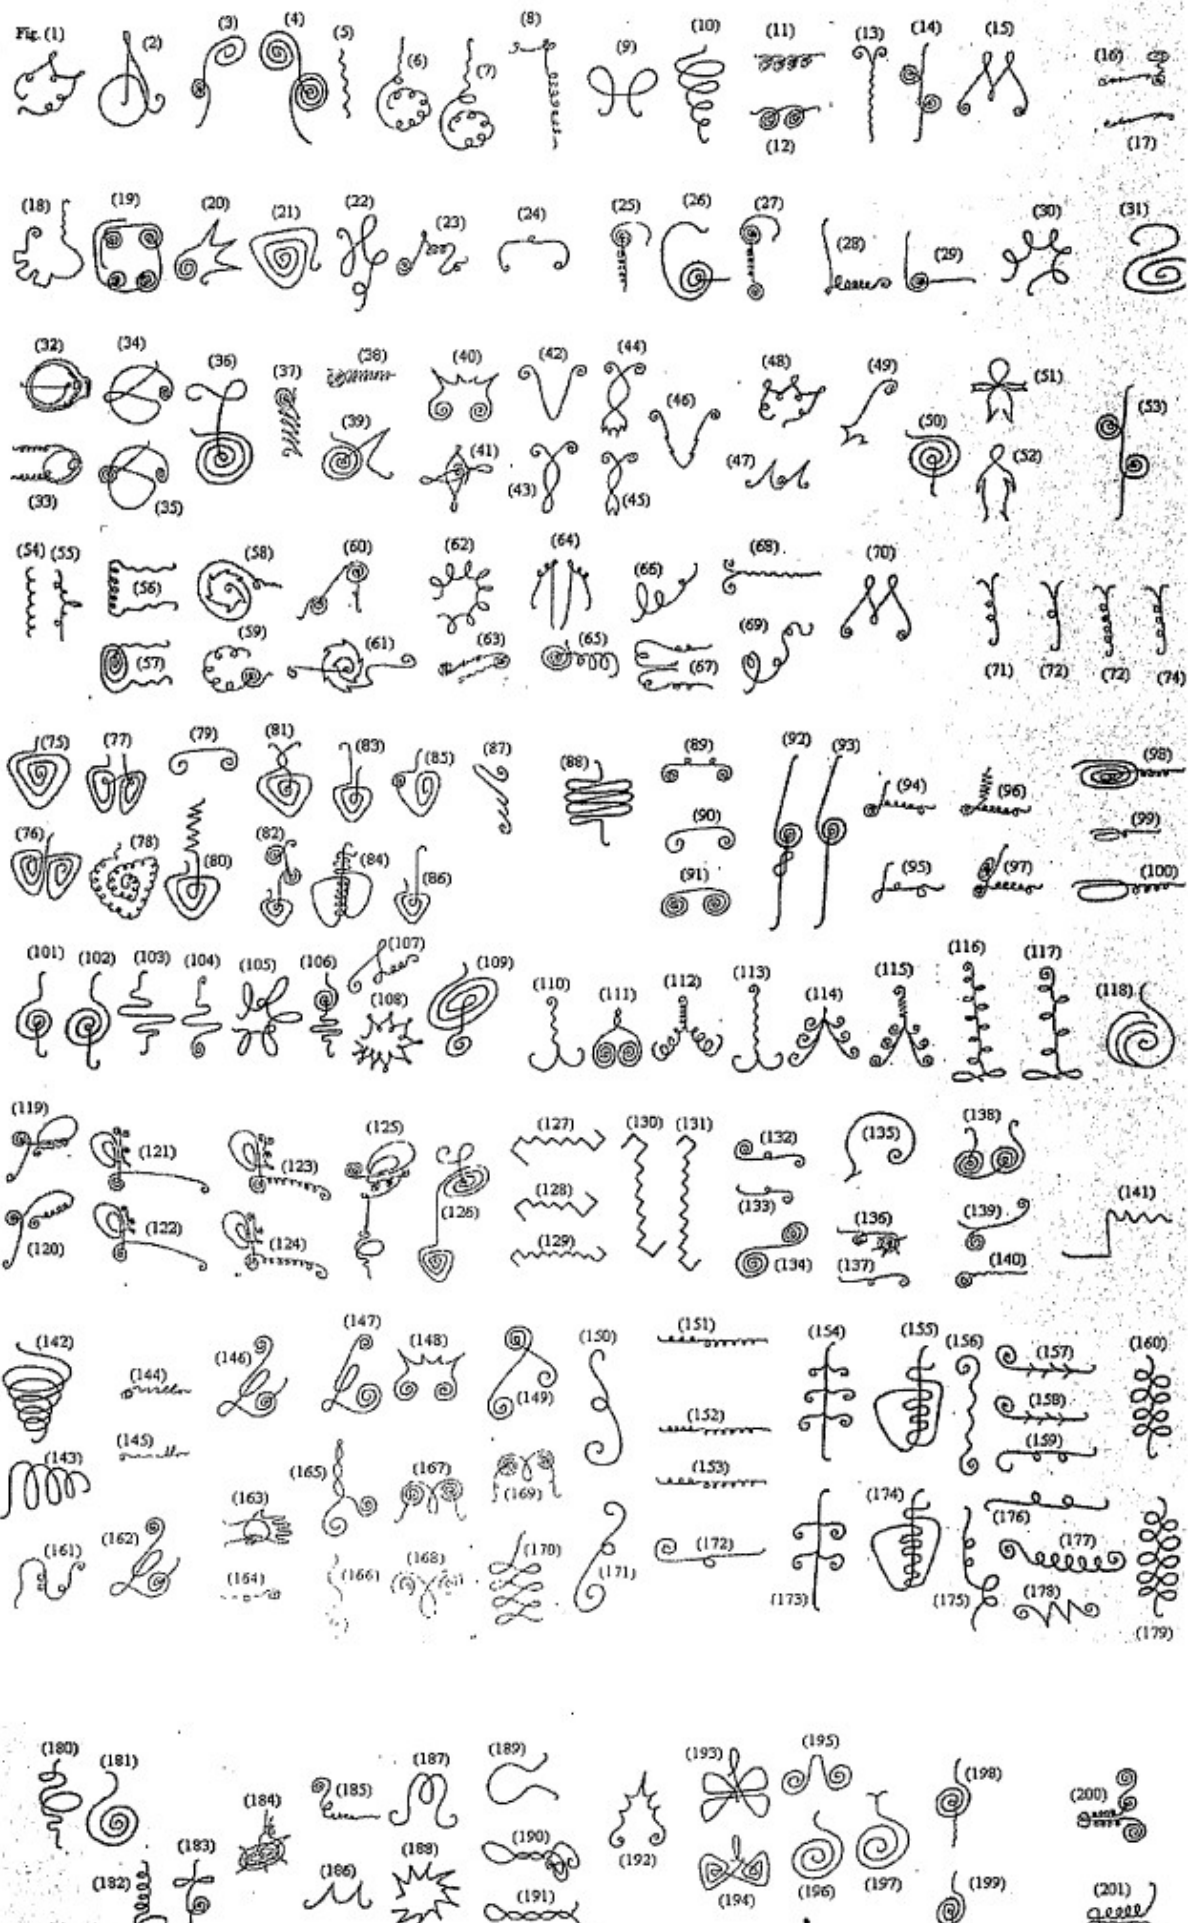 Fig. (1) (2) (3) (4) (5) (6) (7) (8) (9) (10) (11) (13) (14) (15) (16)
(12) (17)
(18) (19) (20) (21) (22) (23) (24) (25) (26) (27) (28) (29) (30) (31)
(32) (34) (36) (37) (38) (40) (42) (44) (46) (48) (49) (50) (51) (53)
(33) (35) (39) (41) (43) (45) (47) (52)
(54) (55) (56) (58) (60) (62) (64) (66) (68) (70)
(57) (59) (61) (63) (65) (67) (69) (71) (72) (72) (74)
(75) (77) (79) (81) (83) (85) (87) (88) (89) (92) (93) (94) (96) (98)
(90) (99)
(76) (78) (80) (82) (84) (86) (91) (95) (97) (100)
(101) (102) (103) (104) (105) (106) (107) (109) (110) (111) (112) (113) (114) (115) (116) (117) (118)
(108)
(119) (121) (123) (125) (127) (130) (131) (132) (135) (138)
(128) (133) (136) (139) (141)
(120) (122) (124) (126) (129) (134) (137) (140)
(142) (144) (146) (147) (148) (149) (150) (151) (154) (155) (156) (157) (160)
(152) (158)
(143) (145) (165) (167) (169) (153) (159)
(163) (174) (176)
(161) (162) (164) (166) (168) (170) (171) (172) (173) (175) (177) (178) (179)
(180) (181) (184) (185) (187) (189) (192) (193) (195) (198) (200)
(190)
(182) (183) (186) (188) (191) (194) (196) (197) (199) (201)